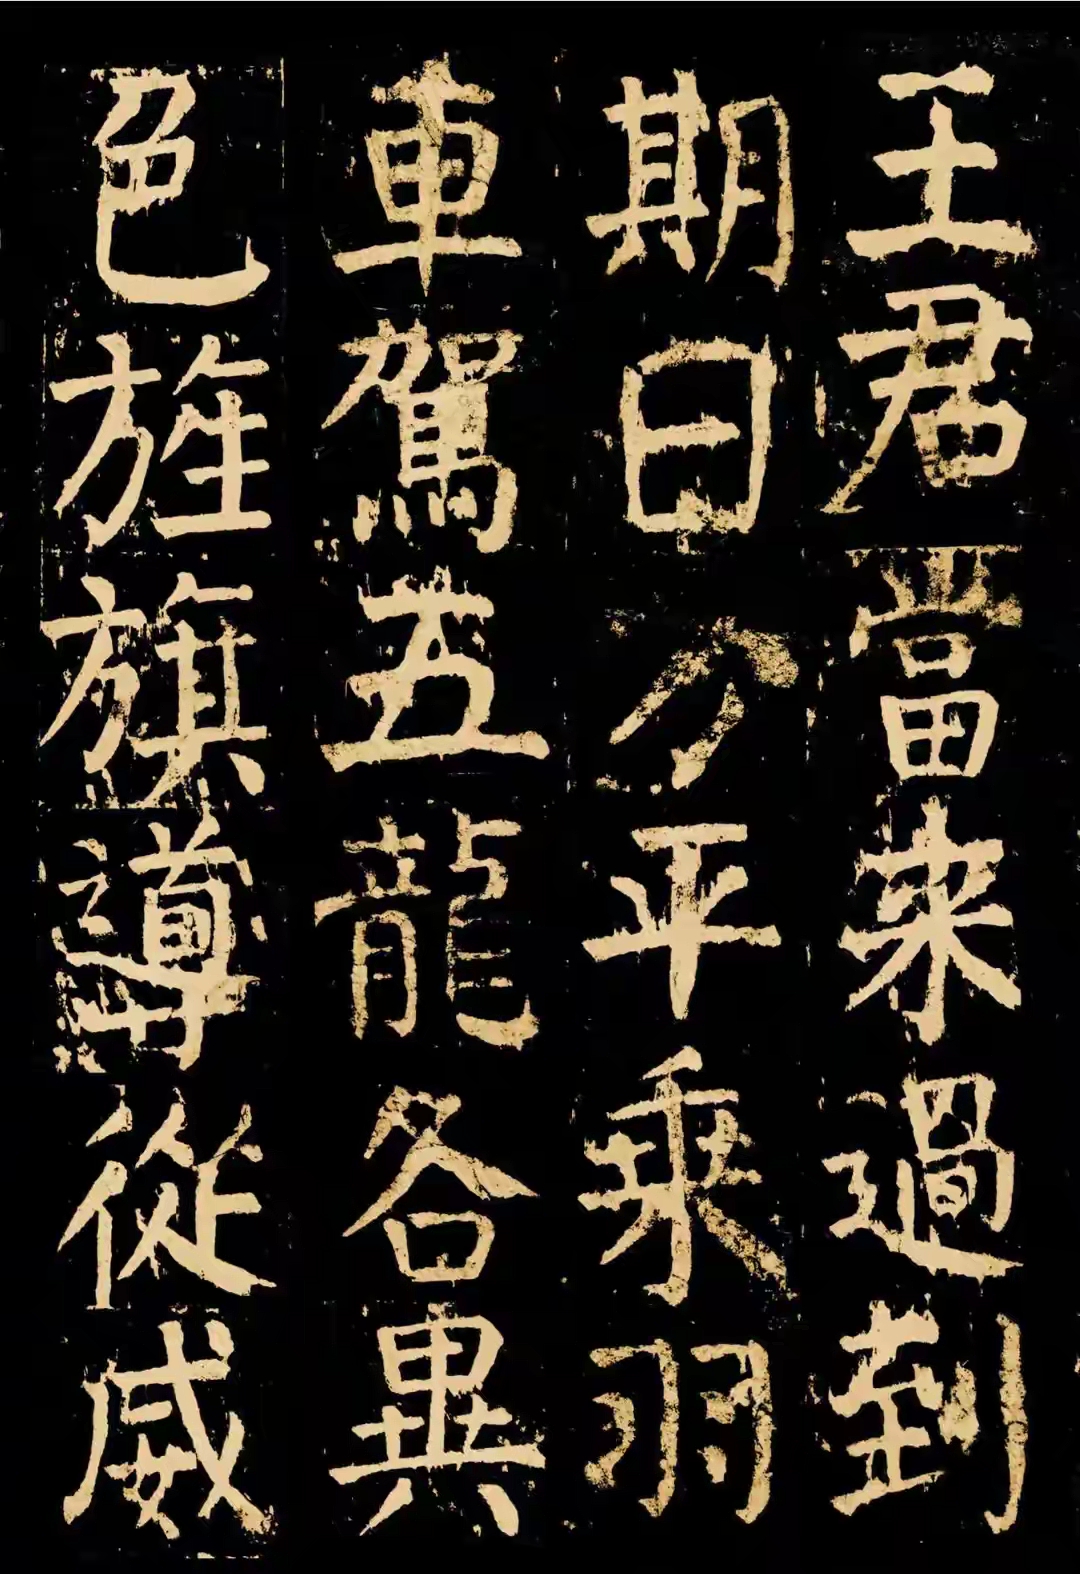 王君當来過到
期日方平乘羽
車駕五龍各異
色旌旗導從威